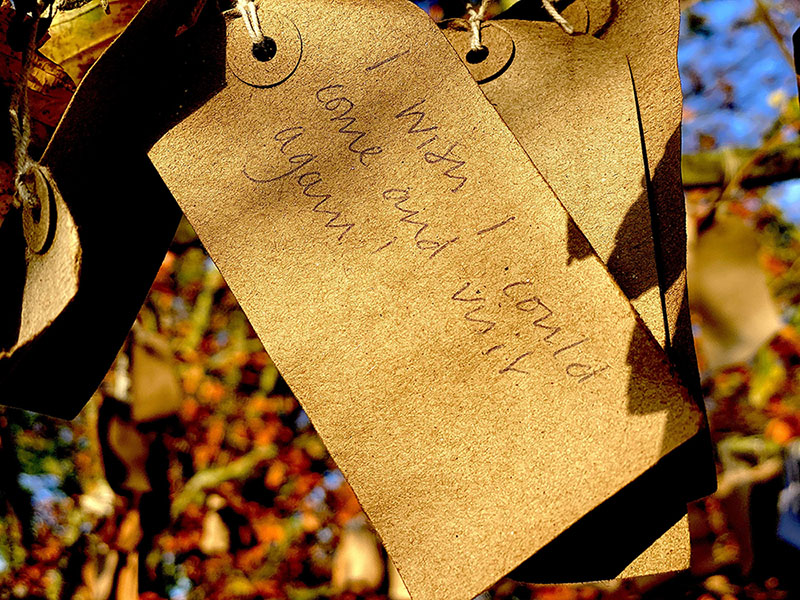 I wish I could
come and visit
again..